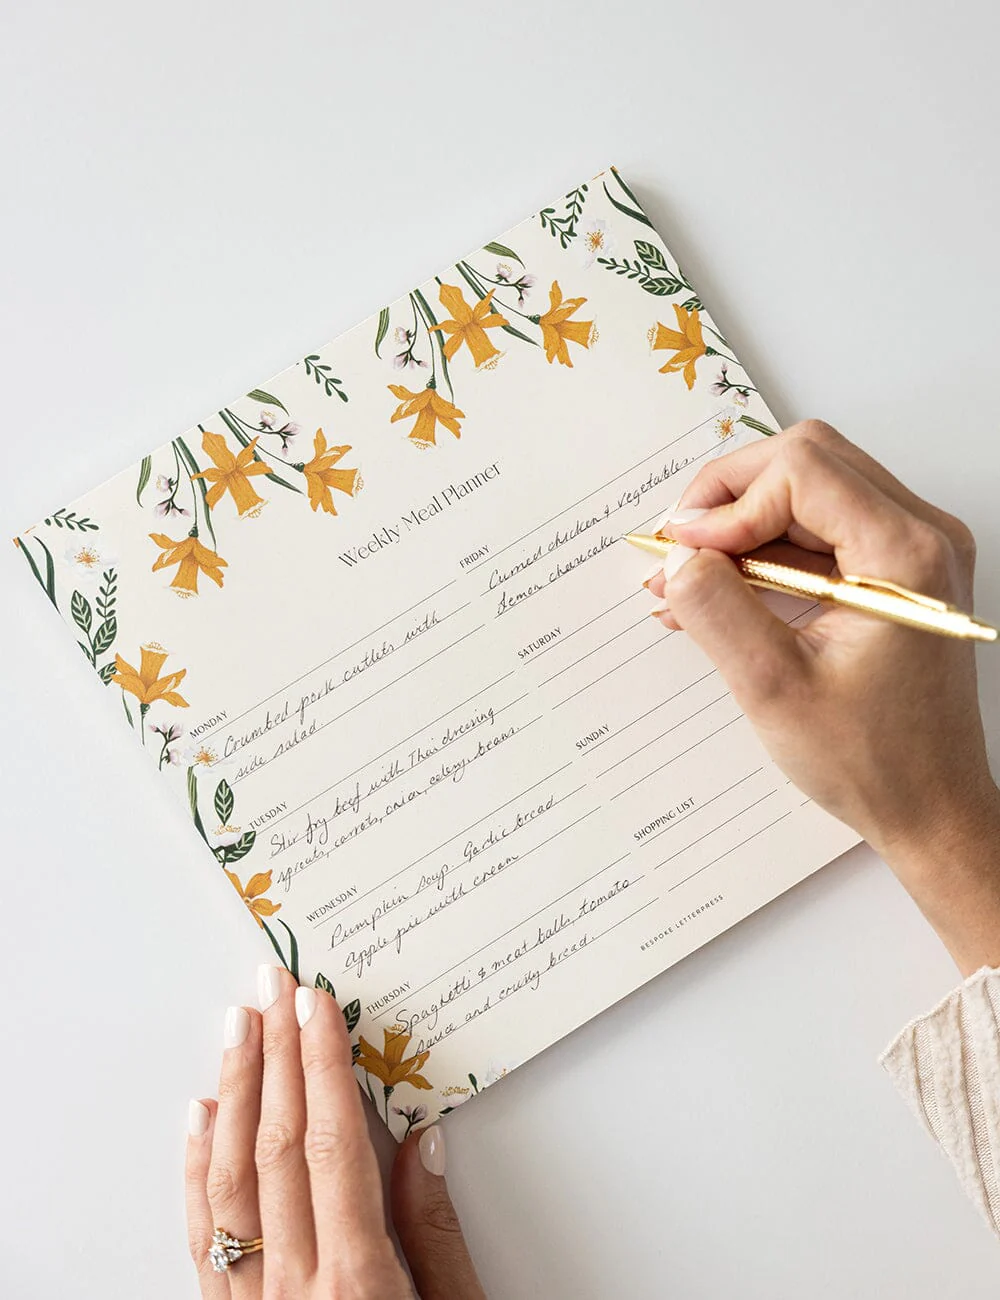 Weekly Meal Planner
MONDAY
Crumbed pork cutlets with
side salad.
TUESDAY
Stir fry beef with Thai dressing
sprouts, carrots, onion, celery, beans.
WEDNESDAY
Pumpkin soup. Garlic bread
apple pie with cream
THURSDAY
Spaghetti & meat balls, tomato
sauce and crusty bread.
FRIDAY
Curried chicken & vegetables.
Lemon cheesecake
SATURDAY
SUNDAY
SHOPPING LIST
BESPOKE LETTERPRESS